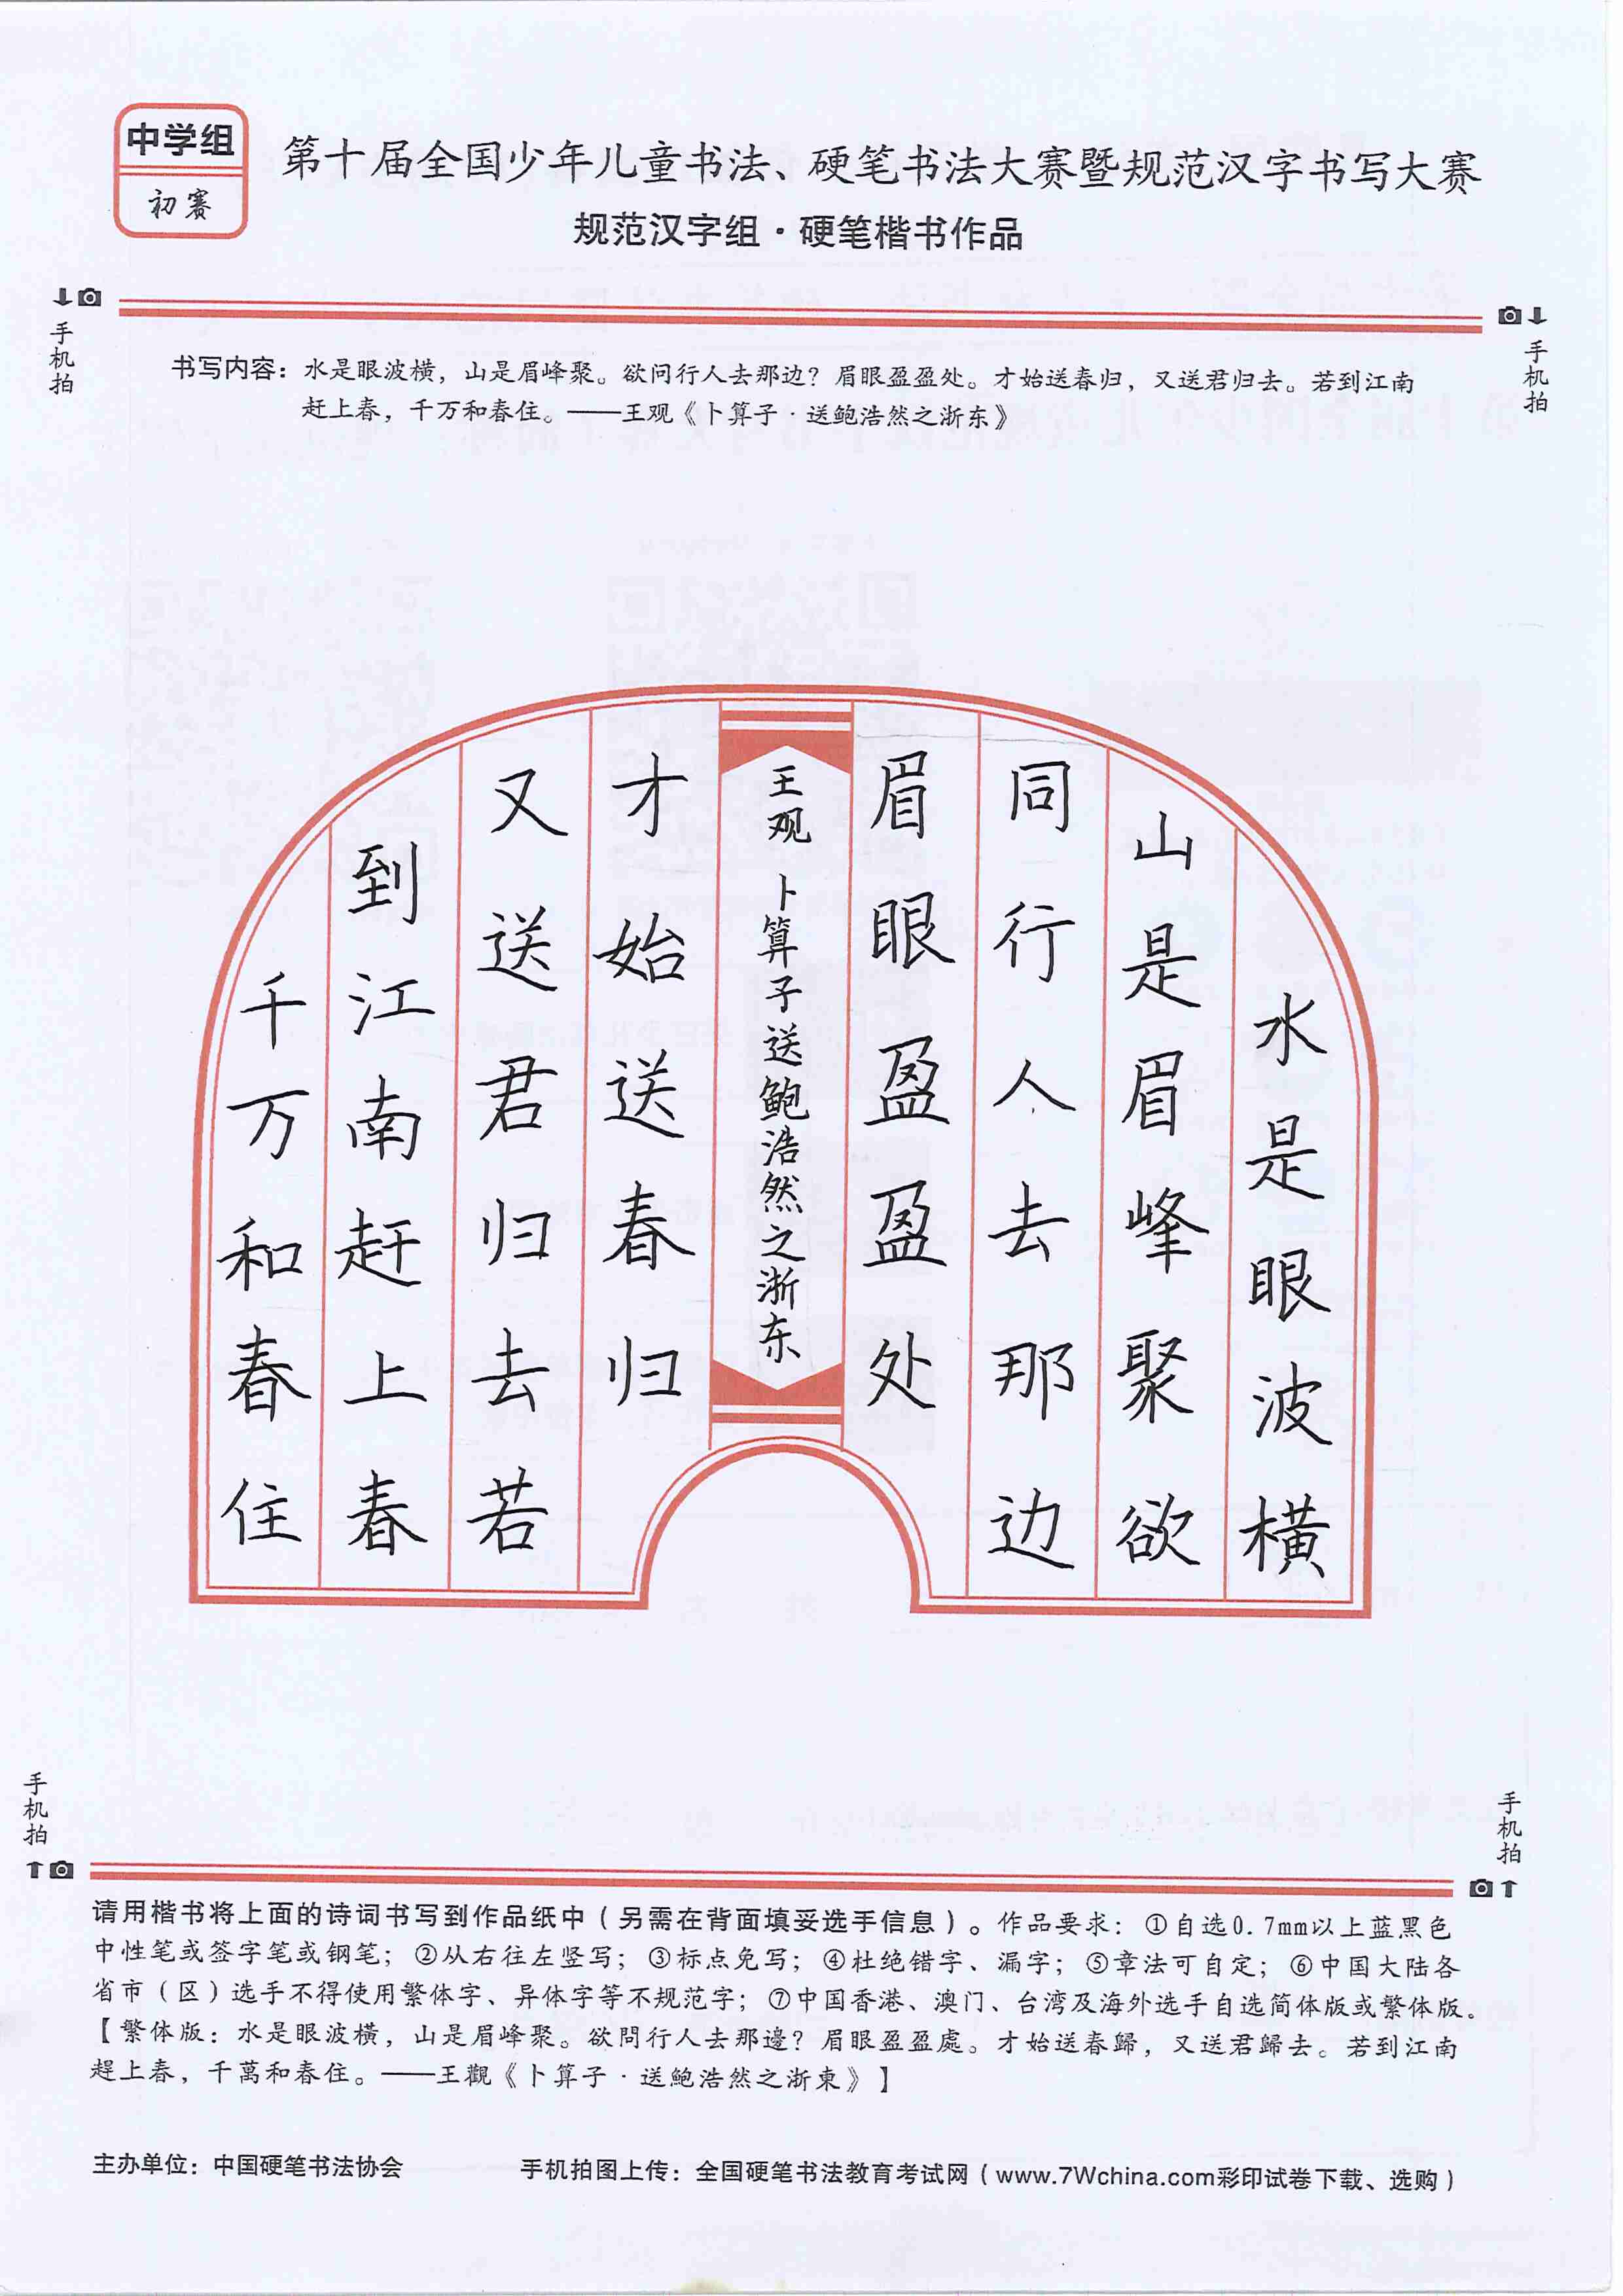 中学组
初赛
第十届全国少年儿童书法、硬笔书法大赛暨规范汉字书写大赛
规范汉字组·硬笔楷书作品
手机拍
手机拍
书写内容：水是眼波横，山是眉峰聚。欲问行人去那边？眉眼盈盈处。才始送春归，又送君归去。若到江南
赶上春，千万和春住。——王观《卜算子·送鲍浩然之浙东》
水是眼波横
山是眉峰聚欲
同行人去那边
眉眼盈盈处
王观 卜算子送鲍浩然之浙东
才始送春归
又送君归去若
到江南赶上春
千万和春住
手机拍
手机拍
请用楷书将上面的诗词书写到作品纸中（另需在背面填妥选手信息）。作品要求：①自选0.7mm以上蓝黑色
中性笔或签字笔或钢笔；②从右往左竖写；③标点免写；④杜绝错字、漏字；⑤章法可自定；⑥中国大陆各
省市（区）选手不得使用繁体字、异体字等不规范字；⑦中国香港、澳门、台湾及海外选手自选简体版或繁体版。
【繁体版：水是眼波橫，山是眉峰聚。欲問行人去那邊？眉眼盈盈處。才始送春歸，又送君歸去。若到江南
趕上春，千萬和春住。——王觀《卜算子·送鮑浩然之浙東》】
主办单位：中国硬笔书法协会
手机拍图上传：全国硬笔书法教育考试网（www.7Wchina.com彩印试卷下载、选购）